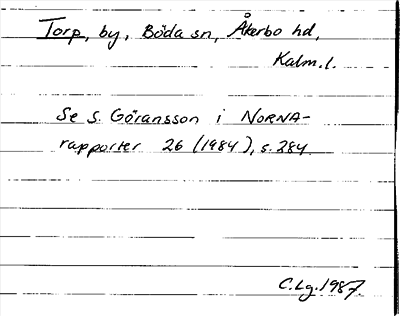 Torp, by, Böda sn, Åkerbo hd,
Kalm. l.
Se S. Göransson i NORNA-
rapporter 26 (1984), s. 284
C. Lg. 1987.